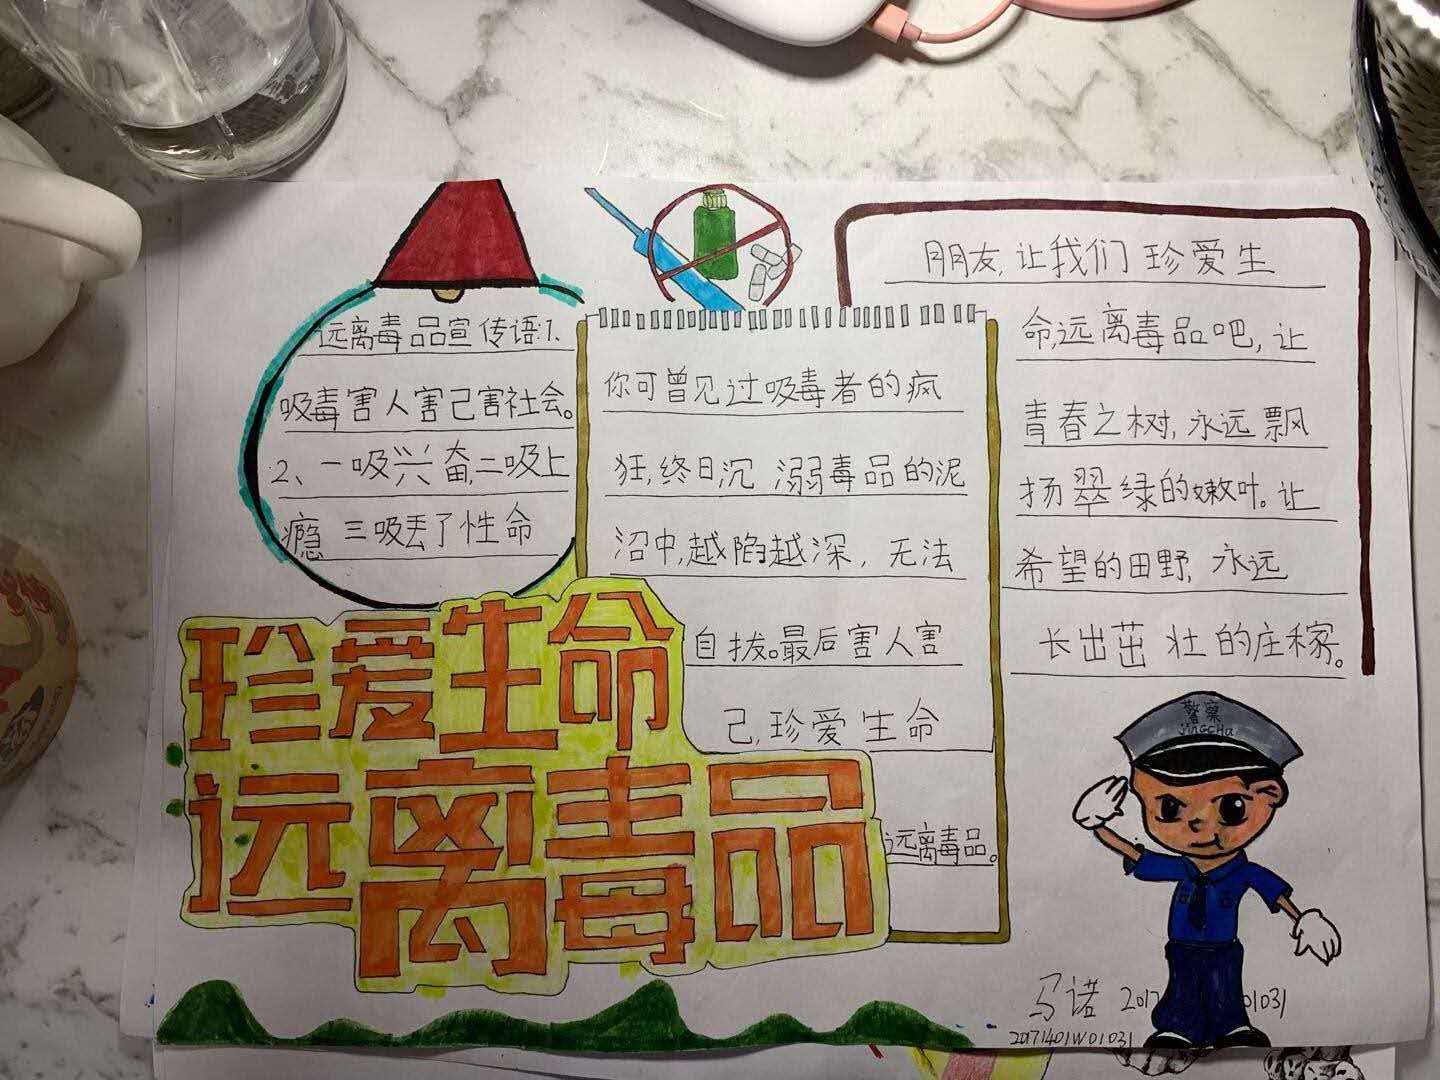 远离毒品宣传语:1、
吸毒害人害己害社会。
2、一吸兴奋,二吸上
瘾 三吸丢了性命
你可曾见过吸毒者的疯
狂,终日沉溺毒品的泥
沼中,越陷越深，无法
自拔。最后害人害
己,珍爱生命
远离毒品。
朋友,让我们珍爱生
命,远离毒品吧,让
青春之树,永远飘
扬翠绿的嫩叶。让
希望的田野,永远
长出茁壮的庄稼。
珍爱生命
远离毒品
警察
jiNGCHa
马诺 2017 01031
20171401W01031